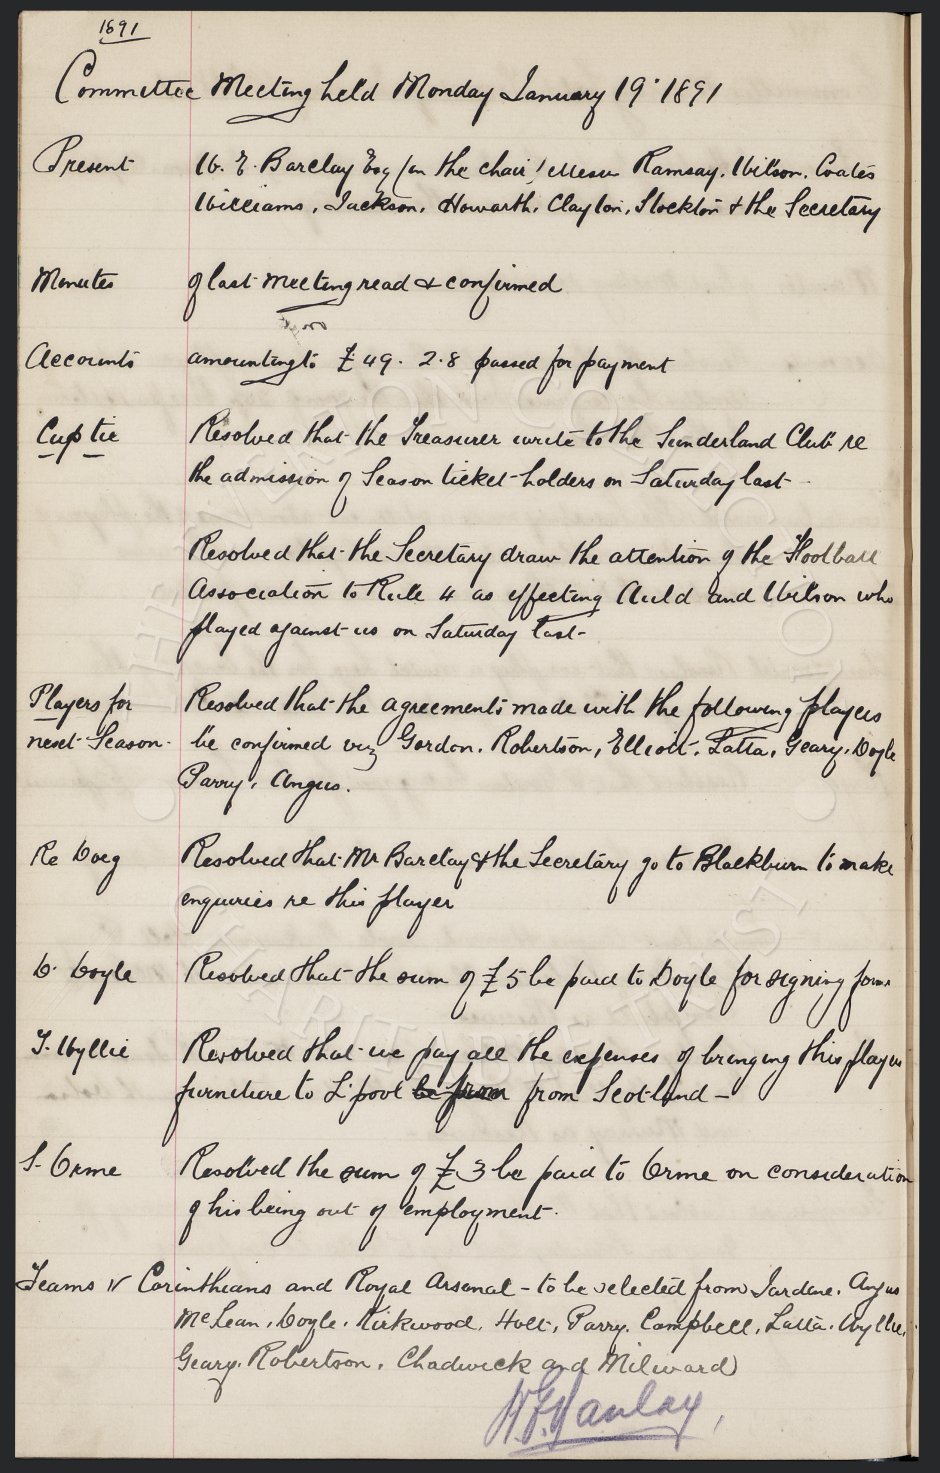 1891
Committee Meeting held Monday January 19 1891
Present W. E. Barclay Esq (in the chair) Messrs Ramsay. Wilson. Coates
Williams, Jackson, Howarth, Clayton, Stockton & the Secretary
Minutes of last meeting read & confirmed
Accounts amounting to £49. 2. 8 passed for payment
Cup tie Resolved that the Treasurer write to the Sunderland Club re
the admission of Season ticket-holders on Saturday last
Resolved that the Secretary draw the attention of the Football
Association to Rule 4 as effecting Auld and Wilson who
played against us on Saturday last-
Players for Resolved that the agreements made with the following players
next Season. be confirmed viz Gordon. Robertson, Elliott. Latta, Geary. Doyle
Parry, Angus.
Re Doeg Resolved that Mr Barclay & the Secretary go to Blackburn to make
enquiries re this player
D. Doyle Resolved that the sum of £5 be paid to Doyle for signing form
T. Wyllie Resolved that we pay all the expenses of bringing this players
furniture to L'pool be from from Scotland -
S. Orme Resolved the sum of £3 be paid to Orme on consideration
of his being out of employment.
Teams v Corinthians and Royal Arsenal - to be selected from Jardine. Angus
McLean, Doyle. Kirkwood, Holt, Parry. Campbell, Latta. Wyllie,
Geary. Robertson, Chadwick and Milward